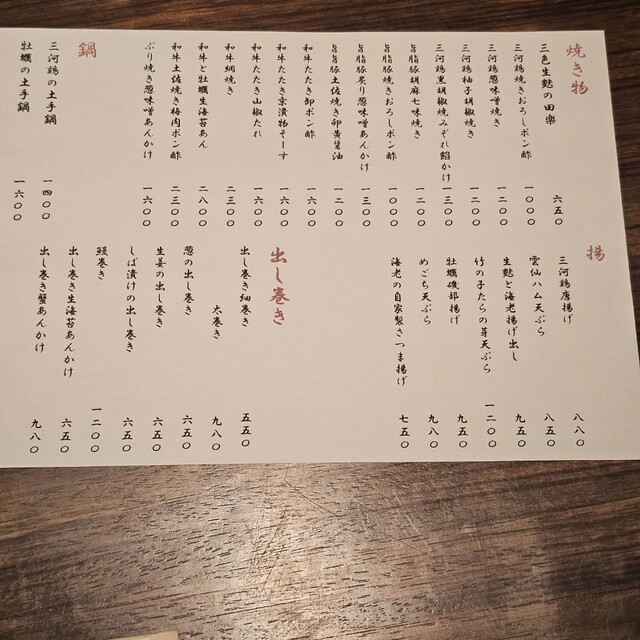 焼き物
三色生麩の田楽 六五〇
三河鶏焼きおろしポン酢 一〇〇〇
三河鶏葱味噌焼き 一二〇〇
三河鶏柚子胡椒焼き 一二〇〇
三河鶏黒胡椒焼みぞれ餡かけ 一三〇〇
旨脂豚胡麻七味焼き 一二〇〇
旨脂豚焼きおろしポン酢 一〇〇〇
旨脂豚炙り葱味噌あんかけ 一三〇〇
旨脂豚土佐焼き卵黄醤油 一二〇〇
和牛たたき卸ポン酢 一六〇〇
和牛たたき京漬物そーす 一六〇〇
和牛たたき山椒たれ 一六〇〇
和牛網焼き 二三〇〇
和牛と牡蠣生海苔あん 二八〇〇
和牛土佐焼き梅肉ポン酢 二三〇〇
ぶり焼き葱味噌あんかけ 一六〇〇
鍋
三河鶏の土手鍋 一四〇〇
牡蠣の土手鍋 一六〇〇
揚
三河鶏唐揚げ 八八〇
雲仙ハム天ぷら 八五〇
生麩と海老揚げ出し 九五〇
竹の子たらの芽天ぷら 一二〇〇
牡蠣磯部揚げ 九五〇
めごち天ぷら 九八〇
海老の自家製さつま揚げ 七五〇
出し巻き
出し巻き細巻き 五五〇
太巻き 九八〇
葱の出し巻き 六五〇
生姜の出し巻き 六五〇
しば漬けの出し巻き 六五〇
鰻巻き 一二〇〇
出し巻き生海苔あんかけ 六五〇
出し巻き蟹あんかけ 九八〇